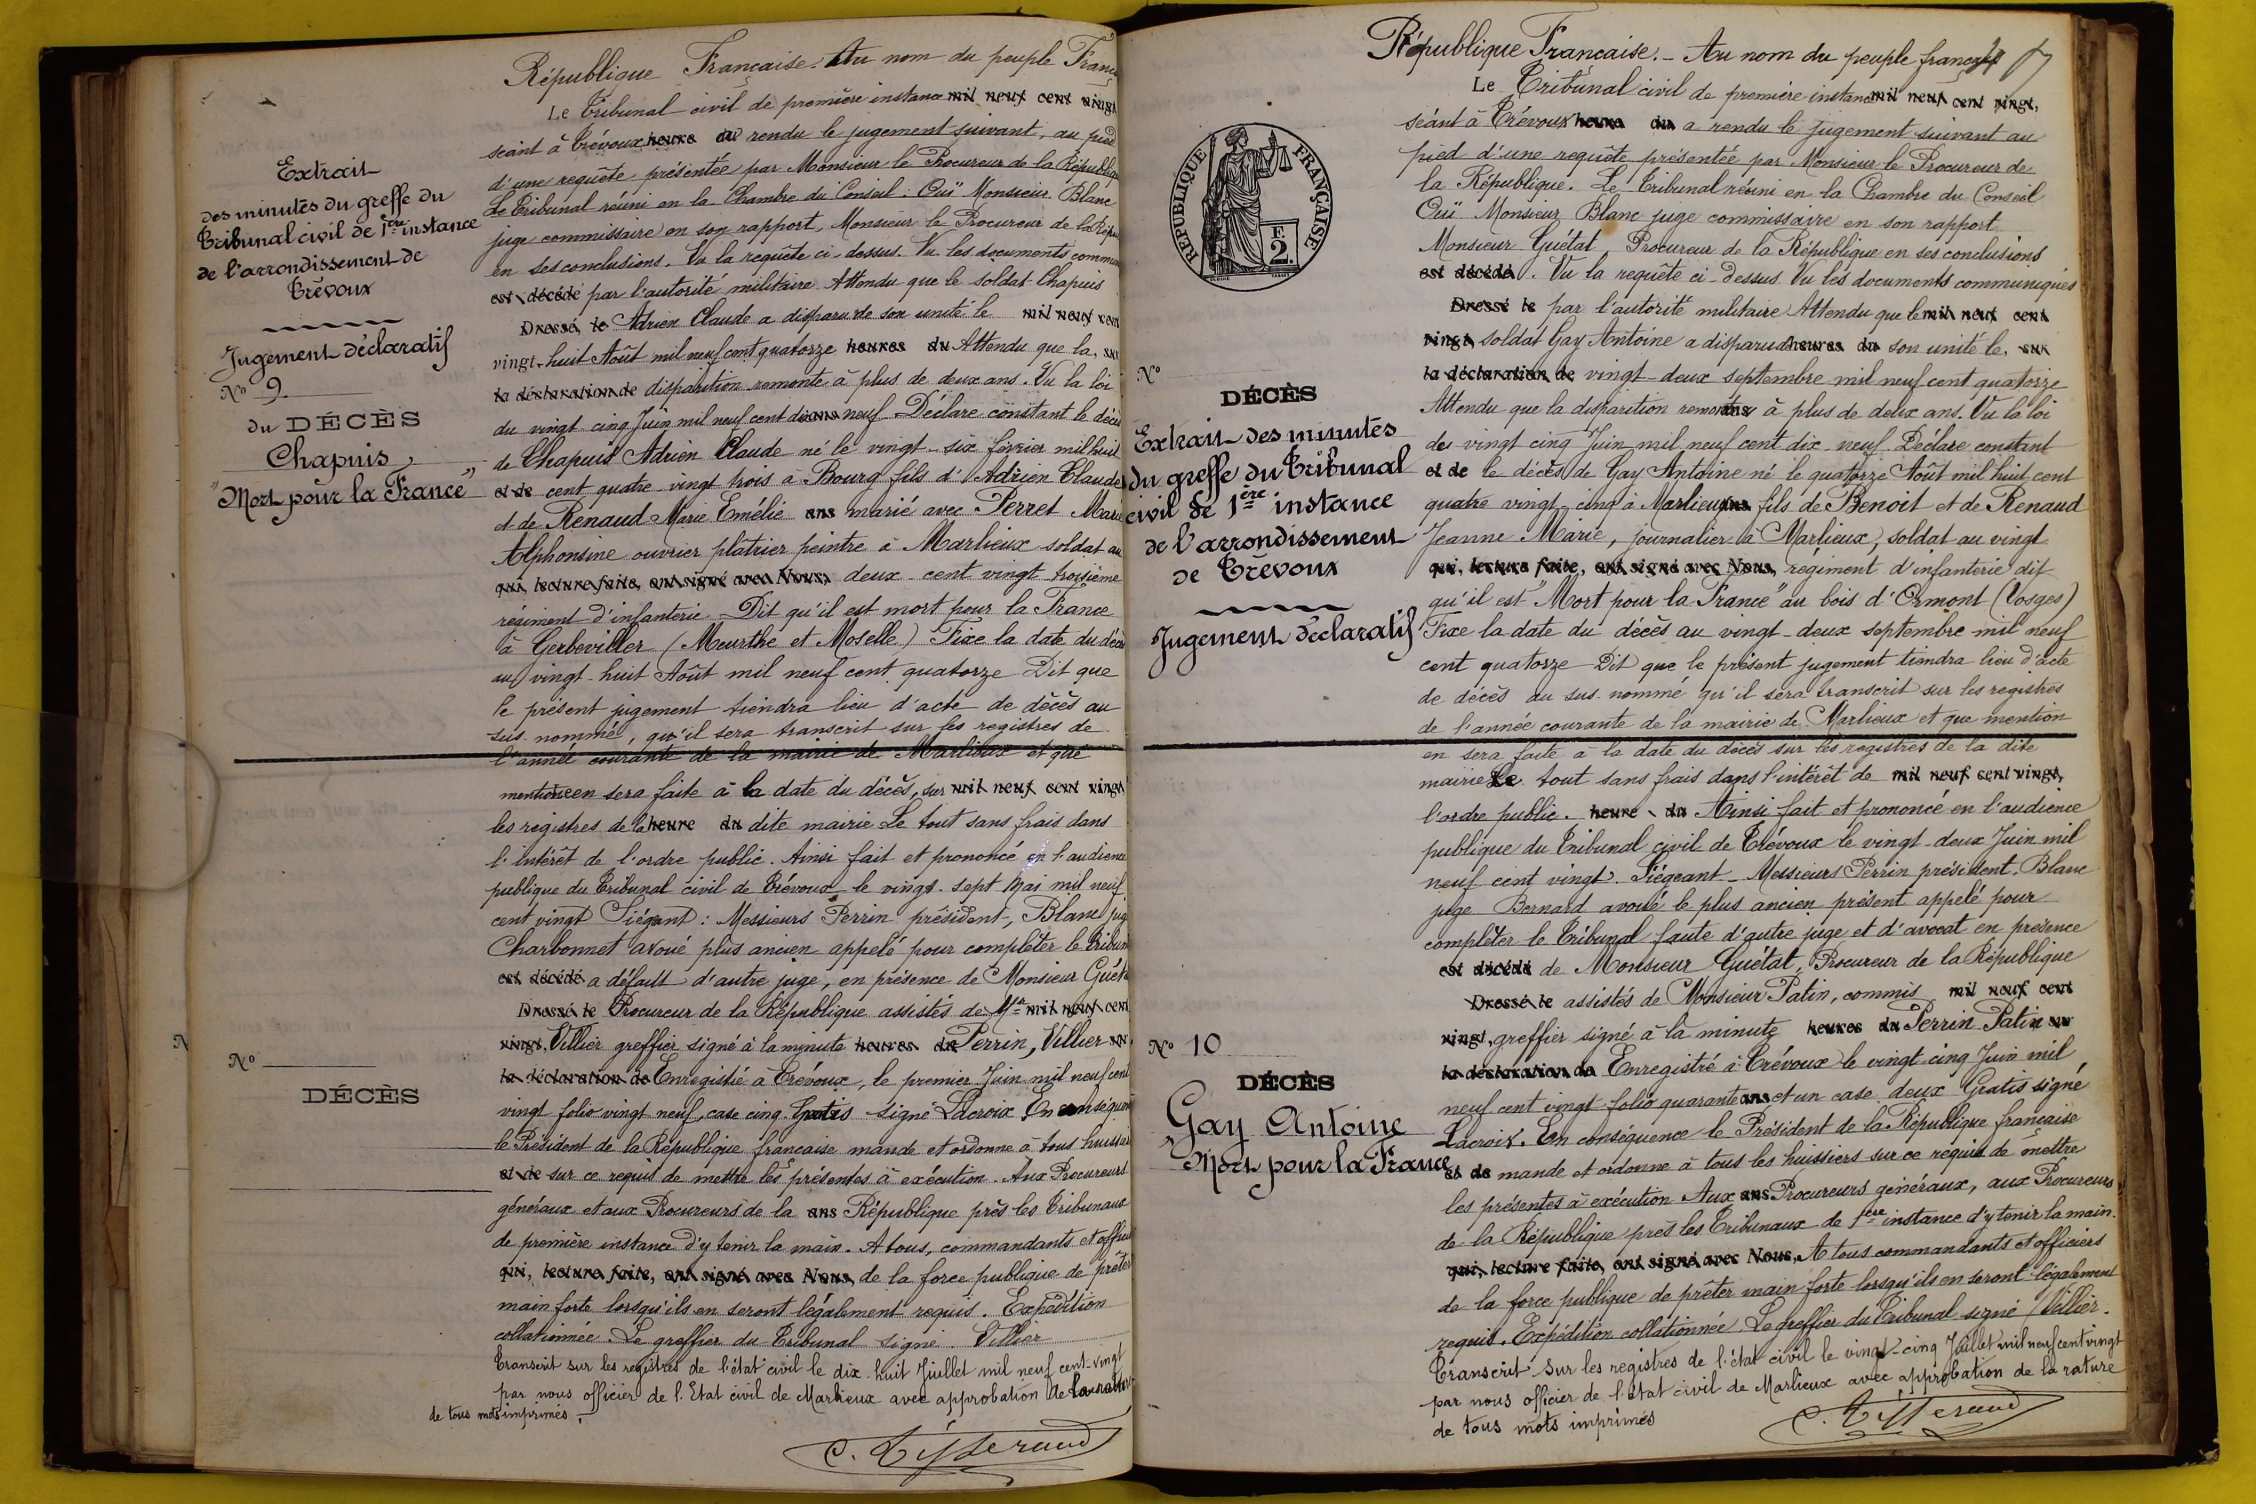 Extrait
des minutes du greffe du
Tribunal civil de 1ère instance
de l'arrondissement de
Trévoux
Jugement déclaratif
N° 9
du DÉCÈS
Chapuis
"Mort pour la France"
République Française. Au nom du peuple Franç
Le Tribunal civil de première instance mil neuf cent vingt
séant à Trévoux heure du rendu le jugement suivant, au pied
d'une requête présentée par Monsieur le Procureur de la République
Le Tribunal réuni en la Chambre du Conseil. Ouï Monsieur Blanc
juge commissaire en son rapport, Monsieur le Procureur de la Répu
en ses conclusions. Vu la requête ci-dessus. Vu les documents commun
est décédé par l'autorité militaire Attendu que le soldat Chapuis
Dressé le Adrien Claude a disparu de son unité le mil neuf cent
vingt-huit Août mil neuf cent quatorze heures du Attendu que la sur
la déclaration de disparition remonte à plus de deux ans. Vu la loi
du vingt cinq Juin mil neuf cent dix ans neuf Déclare constant le décès
de Chapuis Adrien Claude né le vingt-six février mil huit
et de cent quatre vingt trois à Bourg fils d'Adrien Claude
et de Renaud Marie Emélie ans marié avec Perret Marie
Alphonsine ouvrier plâtrier peintre à Marlieux soldat au
qui, lecture faite, ont signé avec Nous, deux cent vingt troisième
régiment d'infanterie Dit qu'il est mort pour la France
à Gerbeviller (Meurthe et Moselle) Fixe la date du décès
au vingt-huit Août mil neuf cent quatorze Dit que
le présent jugement tiendra lieu d'acte de décès au
sus-nommé, qu'il sera transcrit sur les registres de
l'année courante de la mairie de Marlieux et que
mention en sera faite à la date du décès, sur mil neuf cent vingt
les registres de la heure du dite mairie Le tout sans frais dans
l'intérêt de l'ordre public. Ainsi fait et prononcé en l'audience
publique du Tribunal civil de Trévoux le vingt-sept Mai mil neuf
cent vingt Siégeant : Messieurs Perrin président, Blanc jug
Charbonnet avoué plus ancien appelé pour compléter le Tribun
est décédé a défault d'autre juge, en présence de Monsieur Guét
Dressé le Procureur de la République assistés de Me mil neuf cent
vingt, Villier greffier signé à la minute heures du Perrin, Villier sur
la déclaration de Enregistré à Trévoux, le premier Juin mil neuf cent
vingt folio vingt neuf, case cinq. Gratis signé Lacroix En conséquen
le Président de la République française mande et ordonne à tous huissier
et de sur ce requis de mettre les présentes à exécution. Aux Procureurs
généraux et aux Procureurs de la ans République près les Tribunaux
de première instance d'y tenir la main. A tous, commandants et offici
qui, lecture faite, ont signé avec Nous, de la force publique de prêter
main forte lorsqu'ils en seront légalement requis. Expédition
collationnée. Le greffier du Tribunal signé. Villier
Transcrit sur les registres de l'état civil le dix-huit Juillet mil neuf cent-vingt
par nous officier de l'Etat civil de Marlieux avec approbation de la rature
de tous mots imprimés.
C. Tisseraud
N°
DÉCÈS
RÉPUBLIQUE FRANÇAISE
2 F.
N°
DÉCÈS
Extrait des minutes
du greffe du Tribunal
civil de 1ère instance
de l'arrondissement
de Trévoux
Jugement déclaratif
N° 10
DÉCÈS
Gay Antoine
Mort pour la France
République Française. - Au nom du peuple français
Le Tribunal civil de première instance mil neuf cent vingt,
séant à Trévoux heure du a rendu le jugement suivant au
pied d'une requête présentée par Monsieur le Procureur de
la République. Le Tribunal réuni en la Chambre du Conseil
Ouï Monsieur Blanc juge commissaire en son rapport
Monsieur Guétat, Procureur de la République en ses conclusions
est décédé. Vu la requête ci-dessus Vu les documents communiqués
Dressé le par l'autorité militaire Attendu que le mil neuf cent
vingt, soldat Gay Antoine a disparu de heures du son unité le, sur
la déclaration de vingt-deux septembre mil neuf cent quatorze
Attendu que la disparition remonte ans à plus de deux ans. Vu la loi
du vingt cinq Juin mil neuf cent dix-neuf Déclare constant
et de le décès de Gay Antoine né le quatorze Août mil huit cent
quatre vingt-cinq à Marlieux ans fils de Benoit et de Renaud
Jeanne Marie, journalier à Marlieux, soldat au vingt
qui, lecture faite, ont signé avec Nous, régiment d'infanterie dit
qu'il est "Mort pour la France" au bois d'Ormont (Vosges)
Fixe la date du décès au vingt-deux septembre mil neuf
cent quatorze Dit que le présent jugement tiendra lieu d'acte
de décès au sus-nommé qu'il sera transcrit sur les registres
de l'année courante de la mairie de Marlieux et que mention
en sera faite à la date du décès sur les registres de la dite
mairie Le tout sans frais dans l'intérêt de mil neuf cent vingt,
l'ordre public. heure du Ainsi fait et prononcé en l'audience
publique du Tribunal civil de Trévoux le vingt-deux Juin mil
neuf cent vingt. Siégeant Messieurs Perrin président, Blanc
juge Bernard avoué le plus ancien présent appelé pour
compléter le Tribunal faute d'autre juge et d'avocat en présence
est décédé de Monsieur Guétat, Procureur de la République
Dressé le assistés de Monsieur Patin, commis mil neuf cent
vingt, greffier signé à la minute heures du Perrin Patin sur
la déclaration de Enregistré à Trévoux le vingt cinq Juin mil
neuf cent vingt folio quarante ans et un case deux Gratis signé
Lacroix. En conséquence le Président de la République française
et de mande et ordonne à tous les huissiers sur ce requis de mettre
les présentes à exécution Aux ans Procureurs généraux, aux Procureurs
de la République près les Tribunaux de 1ère instance d'y tenir la main.
qui, lecture faite, ont signé avec Nous, A tous commandants et officiers
de la force publique de prêter main forte lorsqu'ils en seront légalement
requis. Expédition collationnée. Le greffier du Tribunal signé Villier.
Transcrit sur les registres de l'état civil le vingt-cinq Juillet mil neuf cent vingt
par nous officier de l'état civil de Marlieux avec approbation de la rature
de tous mots imprimés
C. Tisseraud